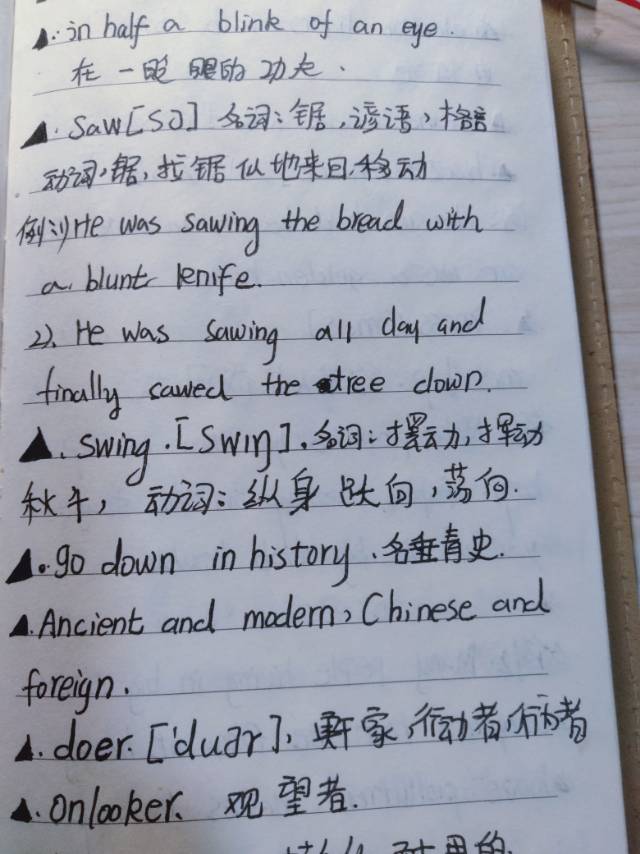 ▲. in half a blink of an eye.
在一眨眼的功夫.
▲. Saw[sɔ] 名词:锯,谚语,格言
动词,锯,拉锯似地来回移动
例:1) He was sawing the bread with
a blunt knife.
2). He was sawing all day and
finally sawed the tree down.
▲. swing.[swɪŋ].名词:摆动,挥动
秋千, 动词:纵身跃向,荡向.
▲. go down in history.名垂青史.
▲. Ancient and modern, Chinese and
foreign.
▲. doer.['duər], 实干家,行动者,行为者
▲. Onlooker. 观望者.
耐用的.